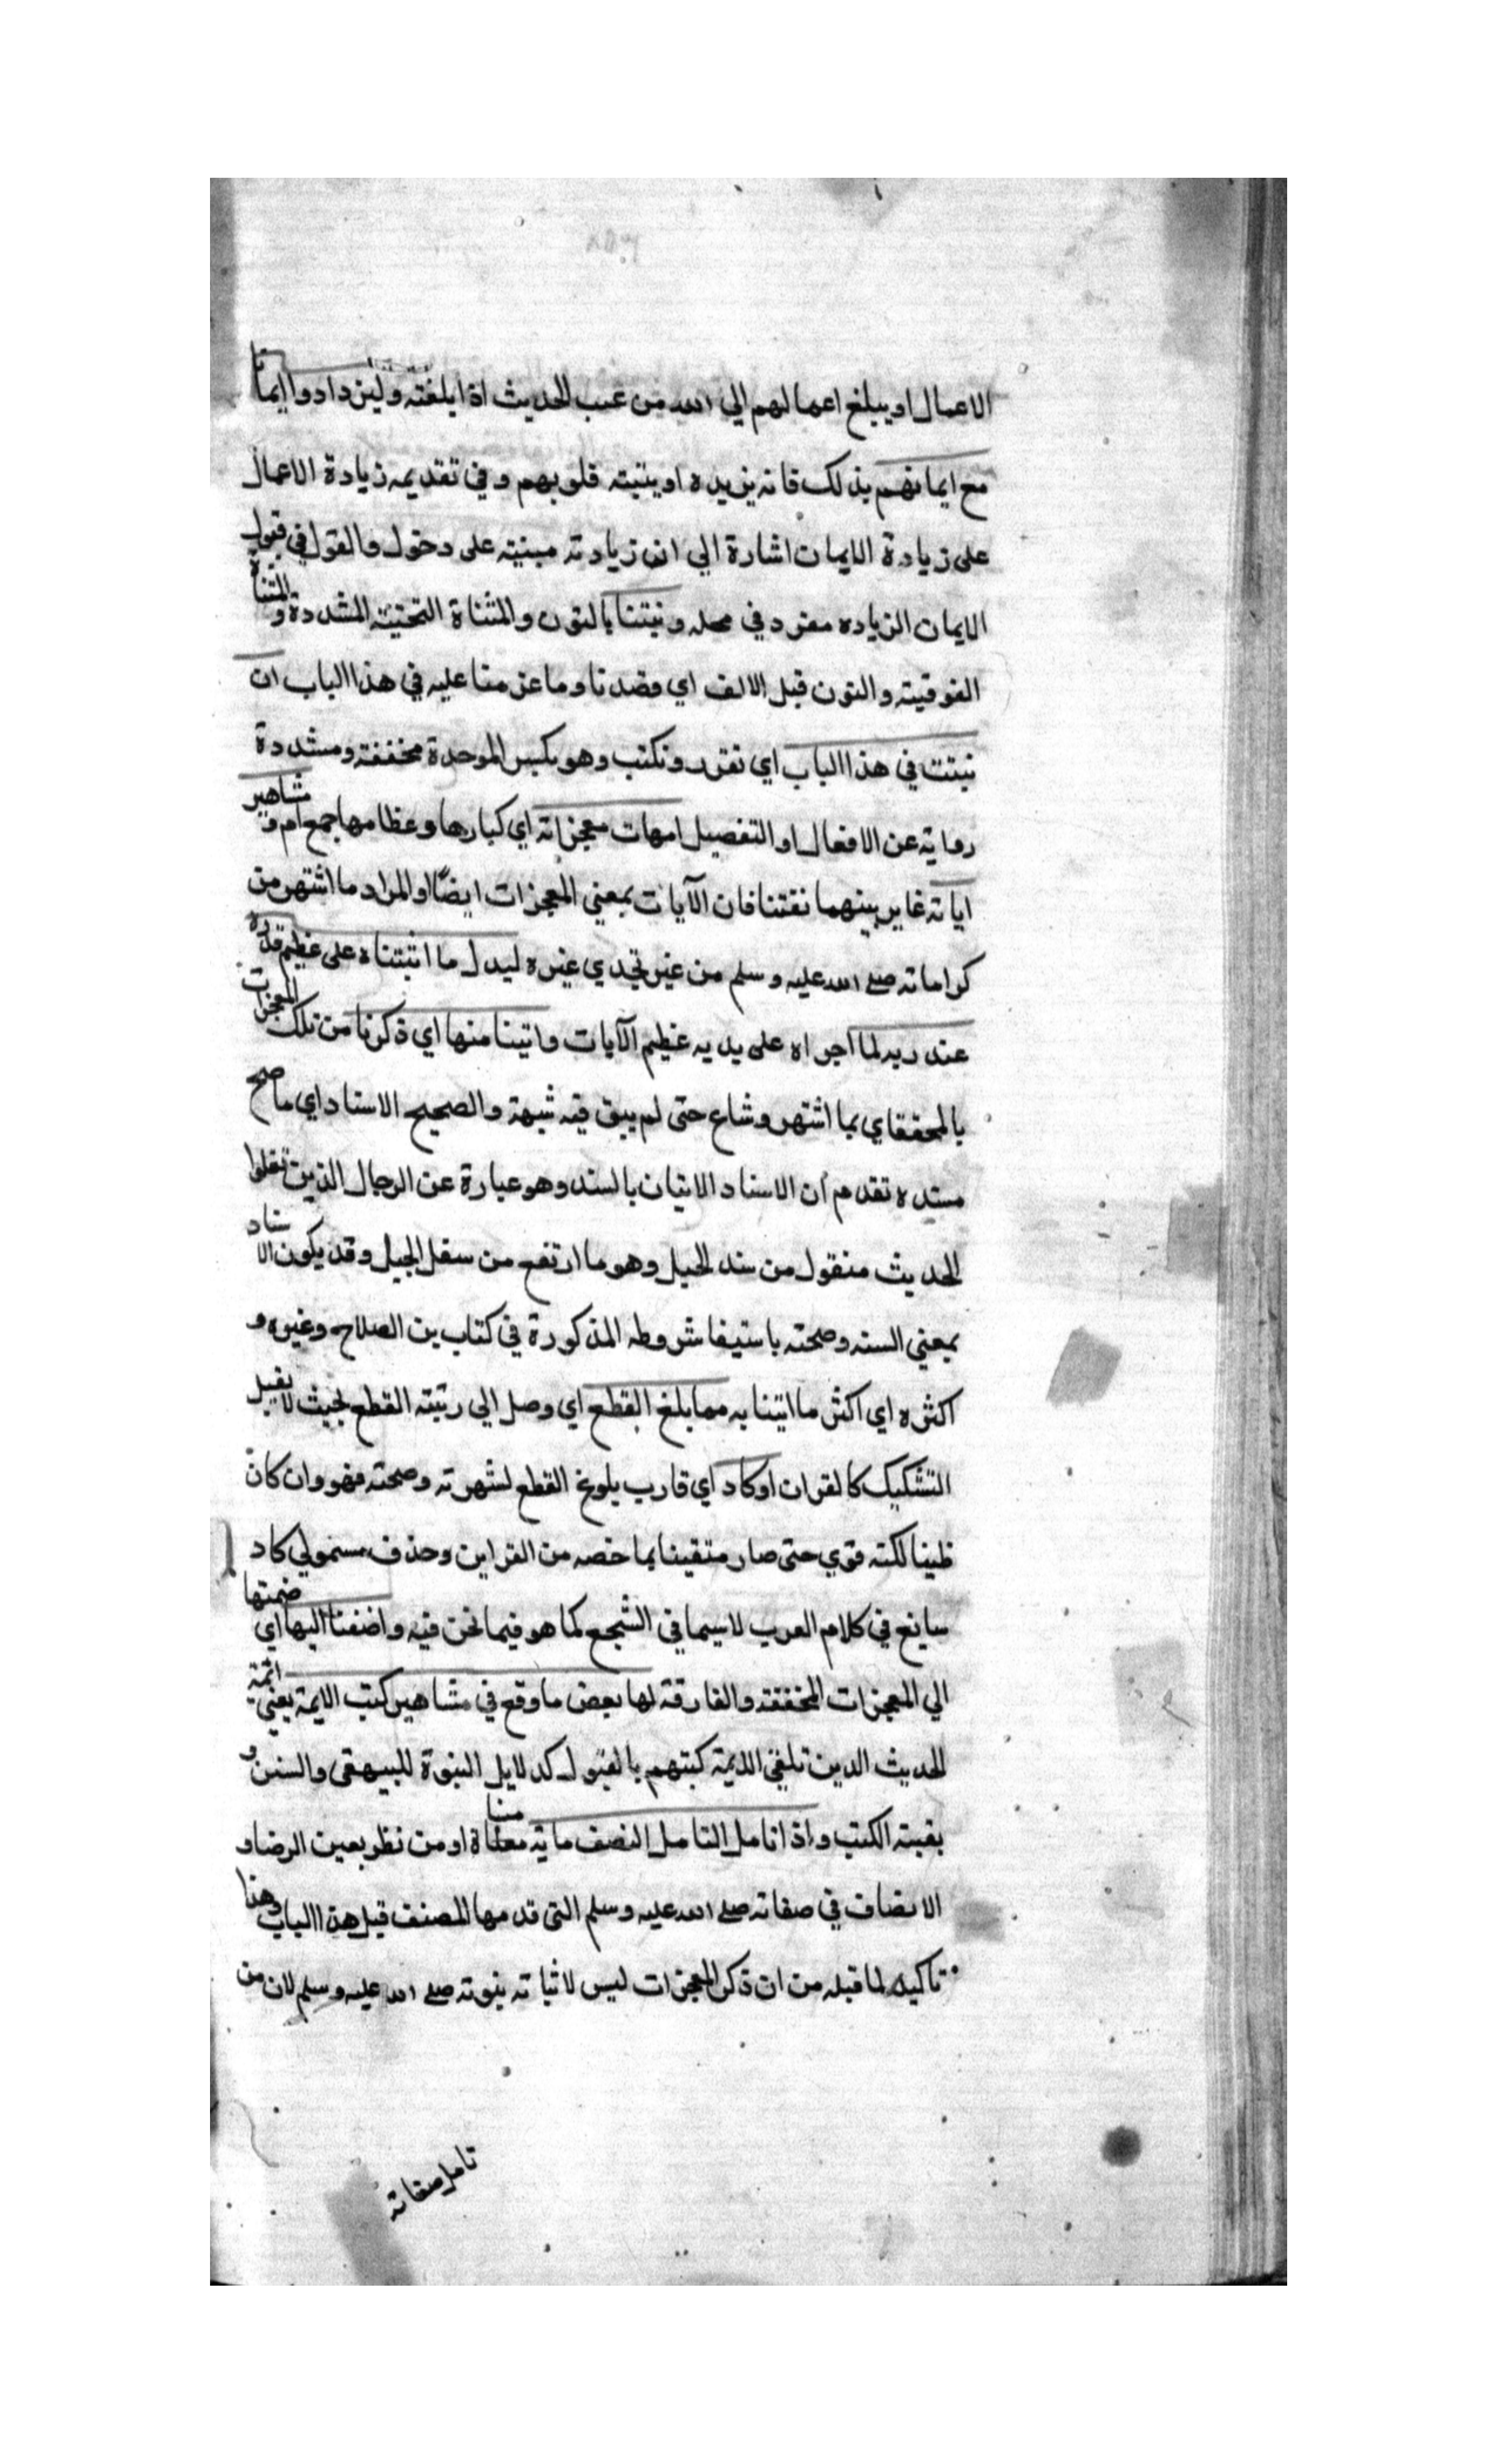 الاعمال او يبلغ اعمالهم الي الله من غيب الحديث اذا بلغته وليزدادوا ايمانا
مع ايمانهم بذلك فانه يزيده او يثبته قلوبهم وفي تقديمه زيادة الاعمال
على زيادة الايمان اشارة الي ان زيادته مبنية على دخول والقول في قبول
الايمان الزياده مقرر في محله ونيتنا بالنون والمثناة التحتية المشددة والمثناة
الفوقية والنون قبل الالف اي قصدنا وما عزمنا عليه في هذا الباب ان
نثبت في هذا الباب اي نقرر ونكتب وهو بكسر الموحدة مخففة ومشددة
رواية عن الافعال او التفصيل امهات معجزاته اي كبارها وعظامها جمع ام ومشاهير
اياته غاير بينهما تفننا فان الآيات بمعني المعجزات ايضًا او المراد ما اشتهر من
كراماته صلى الله عليه وسلم من غير تحدي غيره ليدل ما اثبتناه على عظيم قدره
عند ربه لما اجراه على يديه عظيم الآيات واتينا منها اي ذكرنا من تلك المعجزات
بالمحقق اي بما اشتهر وشاع حتى لم يبق فيه شبهة والصحيح الاسناد اي ما صح
سنده تقدم أن الاسناد الاتيان بالسند وهو عبارة عن الرجال الذين نقلوا
الحديث منقول من سند الجبل وهو ما ارتفع من سفل الجبل وقد يكون الاسناد
بمعني السند وصحته باستيفا شروطه المذكورة في كتاب بن الصلاح وغيره و
اكثره اي اكثر ما اتينا به مما بلغ القطع اي وصل الي رتبة القطع بحيث لا يقبل
التشكيك كالقران او كاد اي قارب بلوغ القطع لشهرته وصحته فهو وان كان
ظنيا لكنه قوي حتى صار متقينا بما خصه من القراين وحذف مسمولي كاد
سايغ في كلام العرب لاسيما في الشجع كما هو فيما نحن فيه واضفنا اليها اي ضممتها
الي المعجزات المخففة والفارقة لها بعض ما وقع في مشاهير كتب الايمة يعني ائمة
الحديث الدين تلقي الائمة كبتهم بالقبول كدلايل النبوة للبيهقي والسنن و
بقية الكتب واذا تامل التامل المنصف ما يه معناه او من نظر بعين الرضا و
الانصاف في صفاته صلى الله عليه وسلم التي قدمها المصنف قبل هذا الباب وهذا
تاكيد لما قبله من ان ذكر المعجزات ليس لاثباته نبوته صلى الله عليه وسلم لان من
تامل صفاته